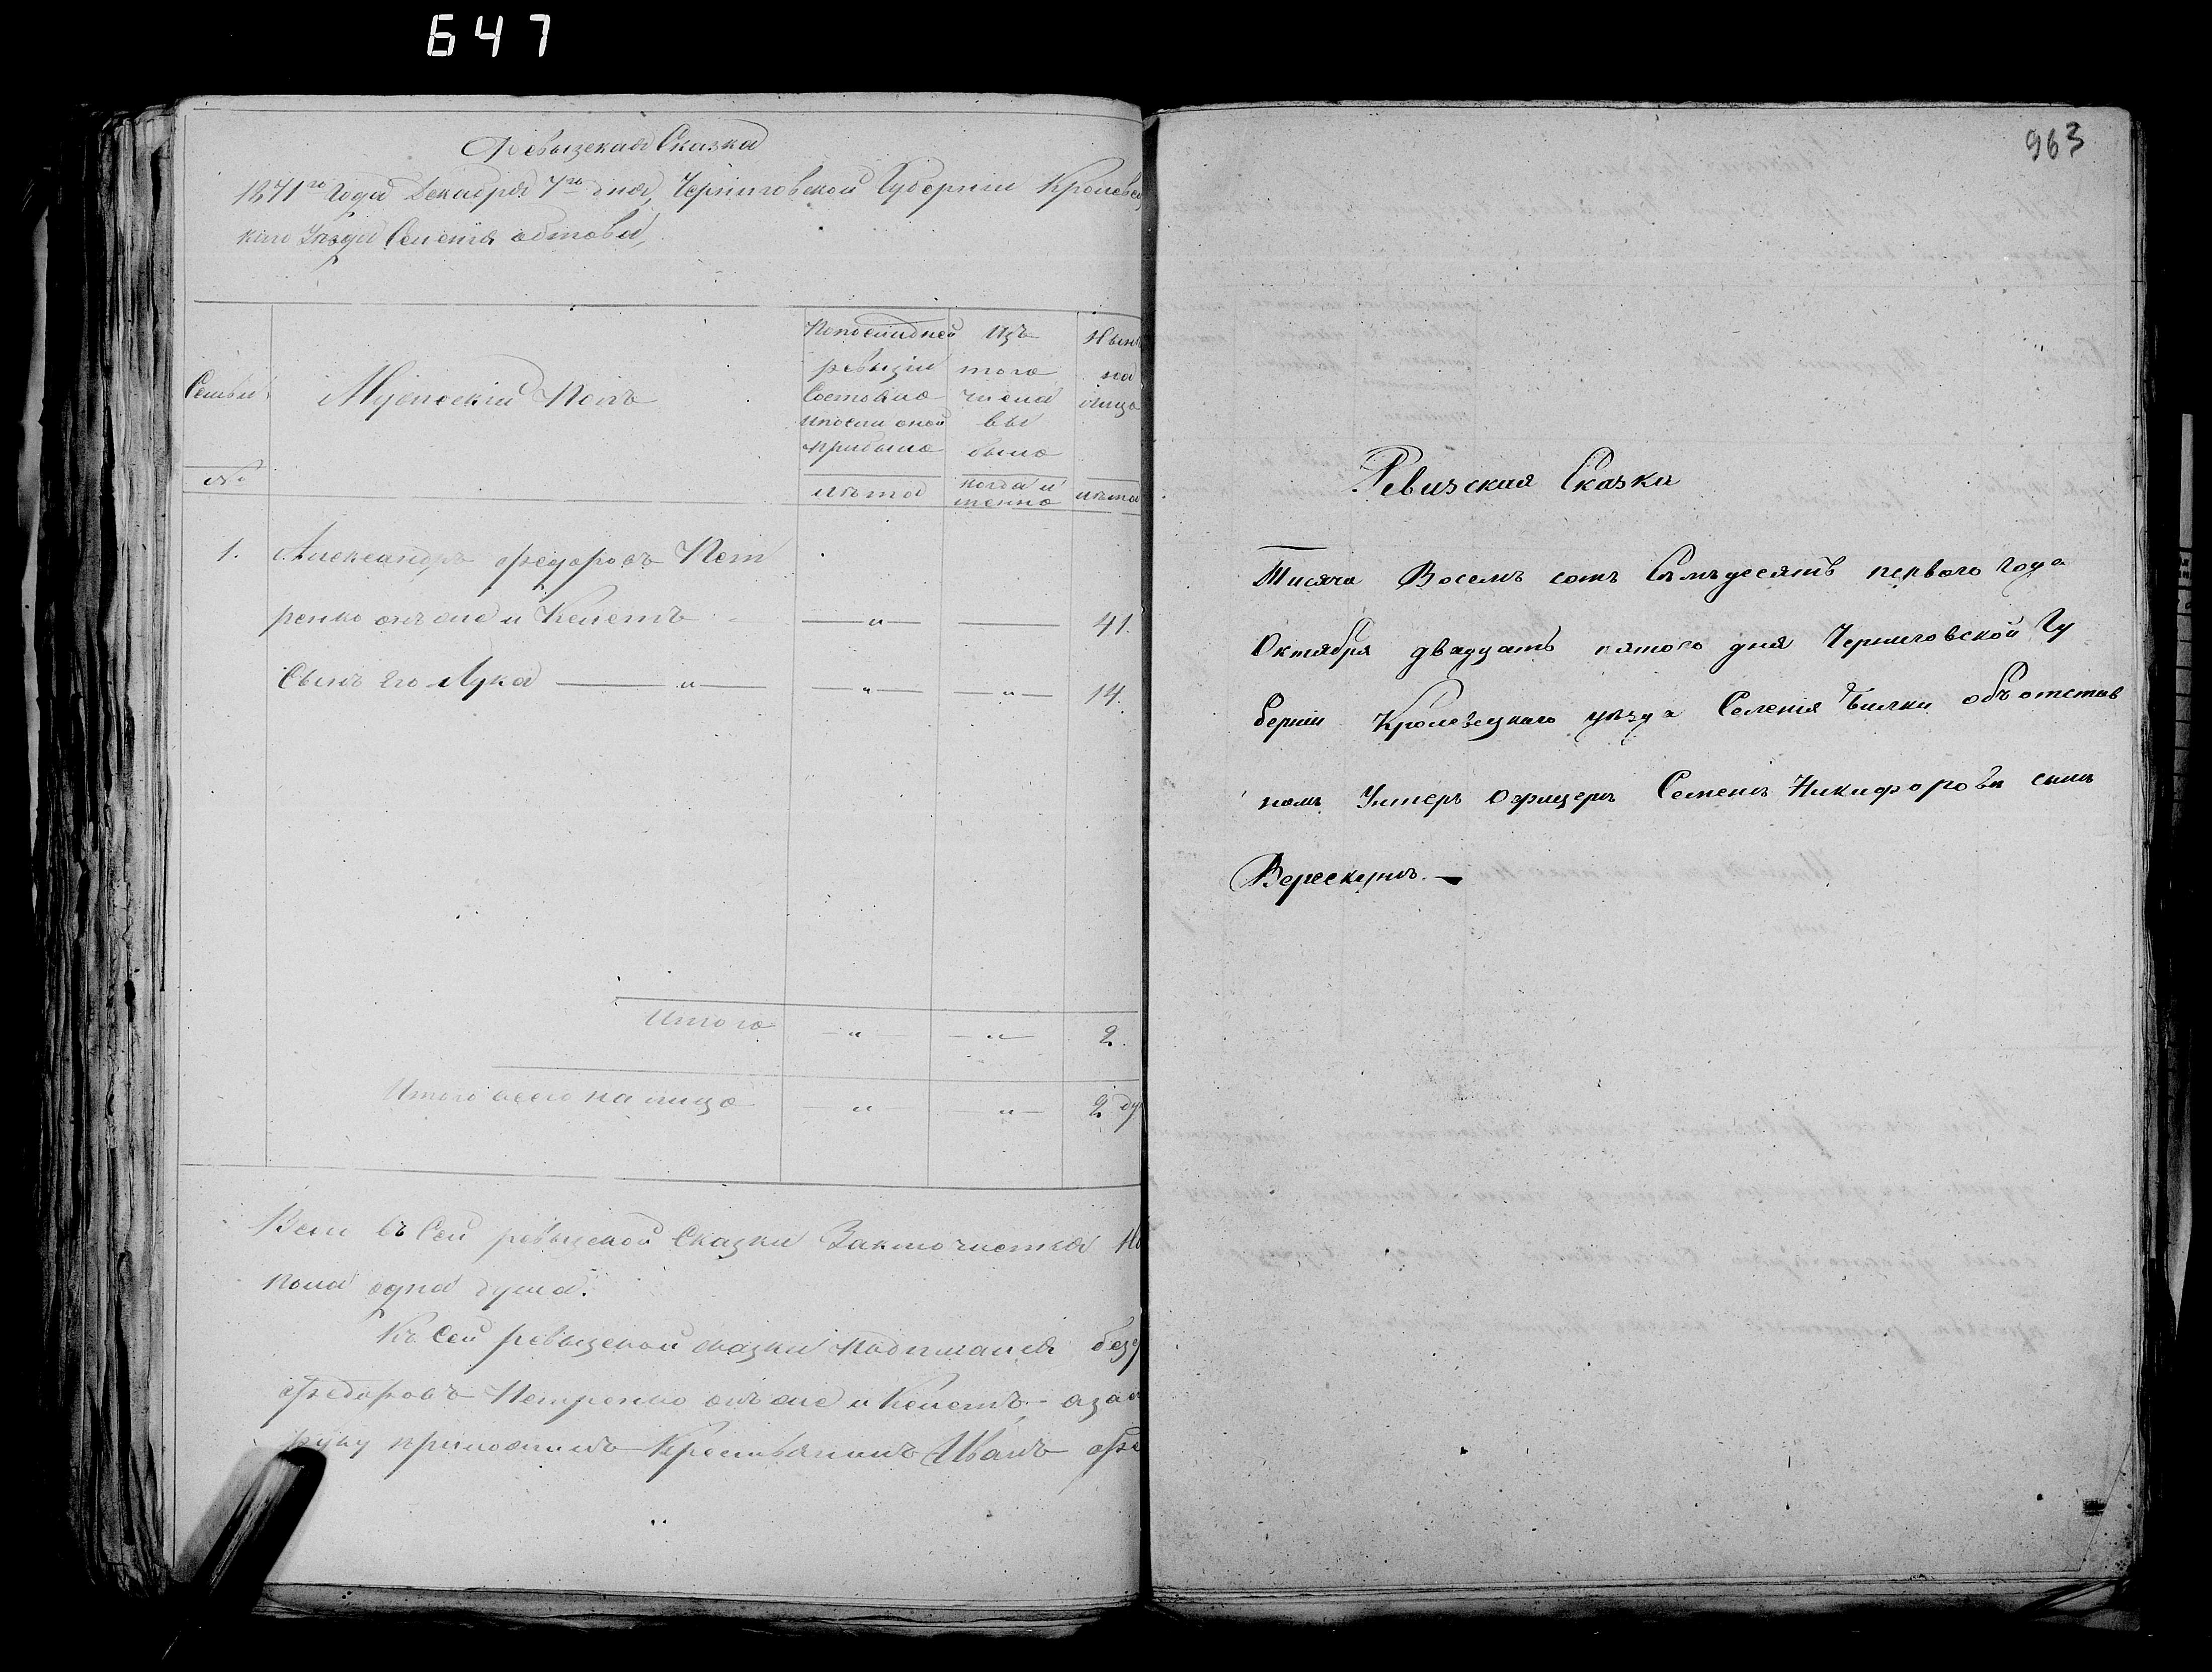 647
Ревызская Сказка
1871го Года Декабря 7го дня, Черниговской Губернии Кролевец
каго Уезда Селения
Семьи
Мужескій Полъ
По последней
ревизіи
Состояло
и после оной
прибыло
Изъ
того
числа
вы
было
Ныне
на
лицо
№
лета
когда и
менно
лета
1. Александръ Федоровъ Пет
ренко онъ же и Кенетъ — " — — 41.
Сынъ его Лука — " — — " — — " — 14.
Итого — " — — " — 2.
Итого всего на лицо — " — — " — 2 ду
въ Сей ревызской Сказки Заключистка
пола одна душа.
Къ Сей ревызской сказки подписался безг
Федоровъ Петренко онъ же и Кенетъ, а за
руку приложилъ Крестьянинъ Иванъ
963
Ревизская Сказка
Тисяча Восемъ сотъ Семъдесятъ первого года
Октября двадцать пятого дня Черниговской Гу
берніи Кролевецкаго уезда Селенія Билки объ отстав
номъ Унтеръ Офицеръ Семенъ Никифоровъ сынъ
Верескунъ. —